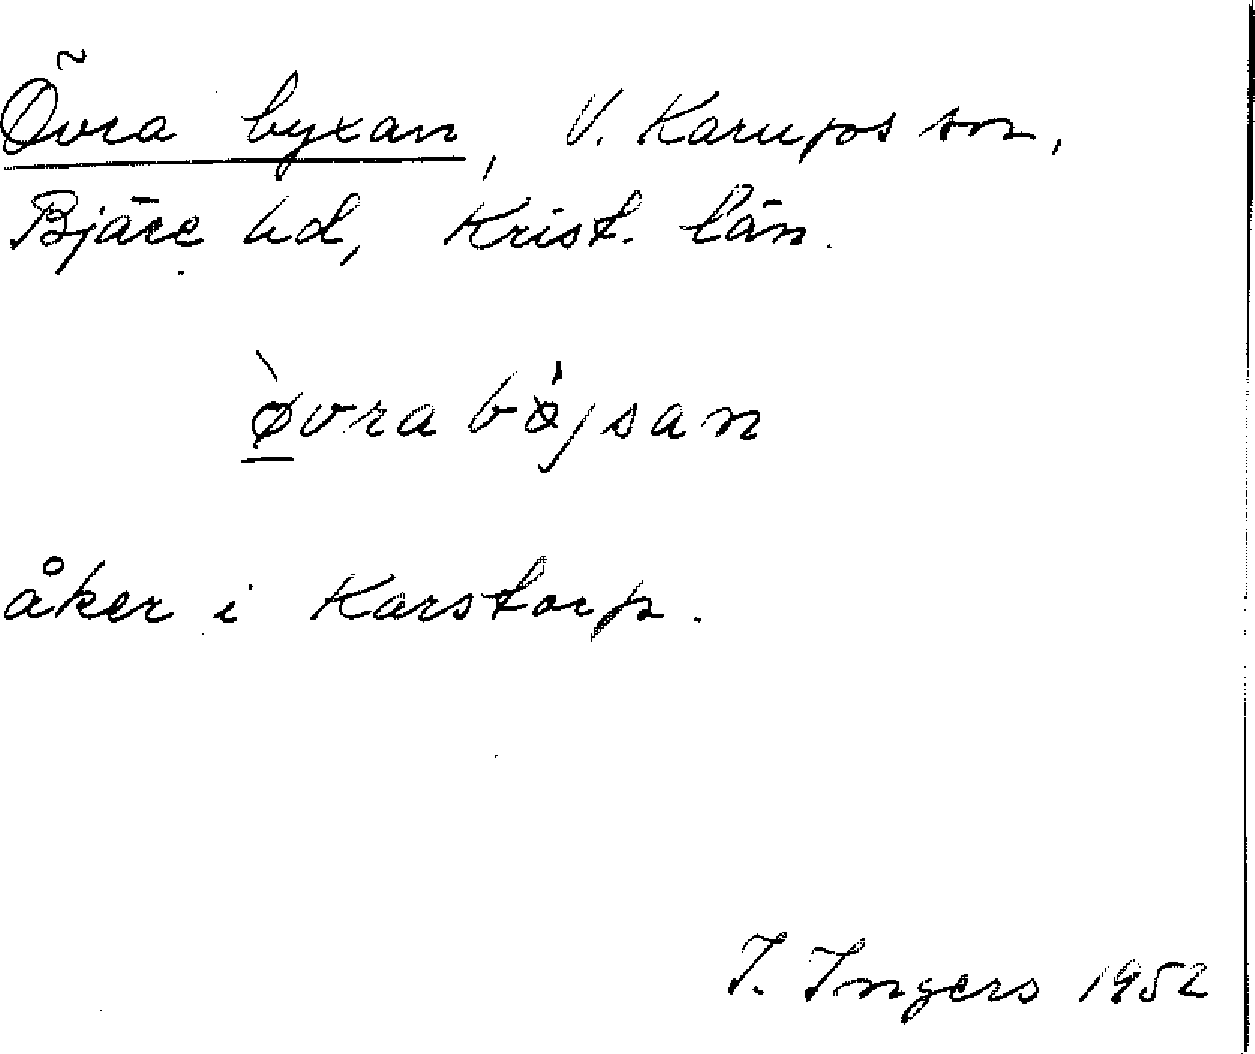 Övra byxan, V. Karups sn,
Bjäre hd, Krist. län.
ø̱̀vrabǿjsan
åker i Karstorp.
I. Ingers 1952